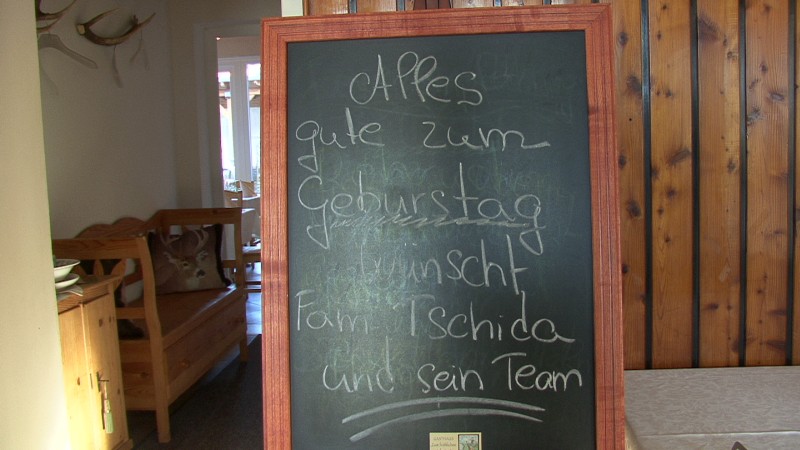 Alles
gute zum
Geburstag
wünscht
Fam. Tschida
und sein Team